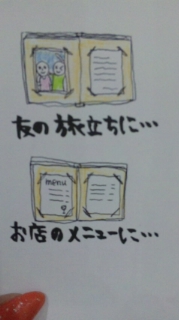 友の旅立ちに…
menu
お店のメニューに…